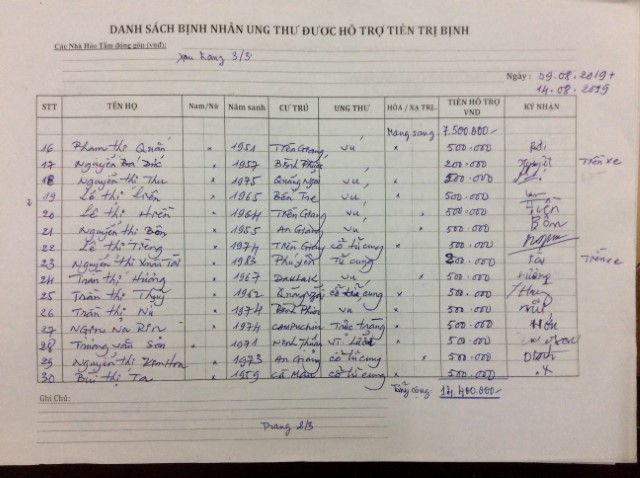 DANH SÁCH BỊNH NHÂN UNG THƯ ĐƯỢC HỖ TRỢ TIỀN TRỊ BỊNH
Các Nhà Hảo Tâm đóng góp (vnđ):
Xem trang 3/3
Ngày: 09.08.2019 +
14.08.2019
STT TÊN HỌ Nam/Nữ Năm sanh CƯ TRÚ UNG THƯ HÓA / XẠ TRỊ.. TIỀN HỖ TRỢ VND KÝ NHẬN
Mang sang 7.500.000
16 Phạm thị Quắn x 1951 Tiền Giang vú x 500.000
17 Nguyễn x 1957 Bình Phước 200.000 Tiền xe
18 Nguyễn thị Thu x 1975 Quảng Ngãi vú x 500.000
19 Lê thị Liên x 1965 Bến Tre vú x 500.000
20 Lê thị Hiền x 1964 Tiền Giang vú x 500.000 Hiền
21 Nguyễn thị Bôn x 1955 An Giang vú x 500.000 Bôn
22 Lê thị Tiếng x 1974 Tiền Giang cổ tử cung x 500.000
23 Nguyễn thị Xuân Tài x 1983 Phú Yên tử cung 200.000 Tài Tiền xe
24 Trần thị Hương x 1967 Daklak vú x 500.000 Hương
25 Trần thị Thủy x 1962 Quảng Ngãi cổ tử cung x 500.000
26 Trần thị Nữ x 1974 Bình Phước vú x 500.000 nữ
27 x 1974 campuchia trực tràng x 500.000
28 Trương văn Sơn x 1971 Ninh Thuận x 500.000
29 Nguyễn thị Kim x 1973 An Giang cổ tử cung x 500.000
30 Bùi thị x 1959 Cà Mau cổ tử cung x 500.000 x
Tổng cộng: 14.400.000
Ghi Chú:
Trang 2/3